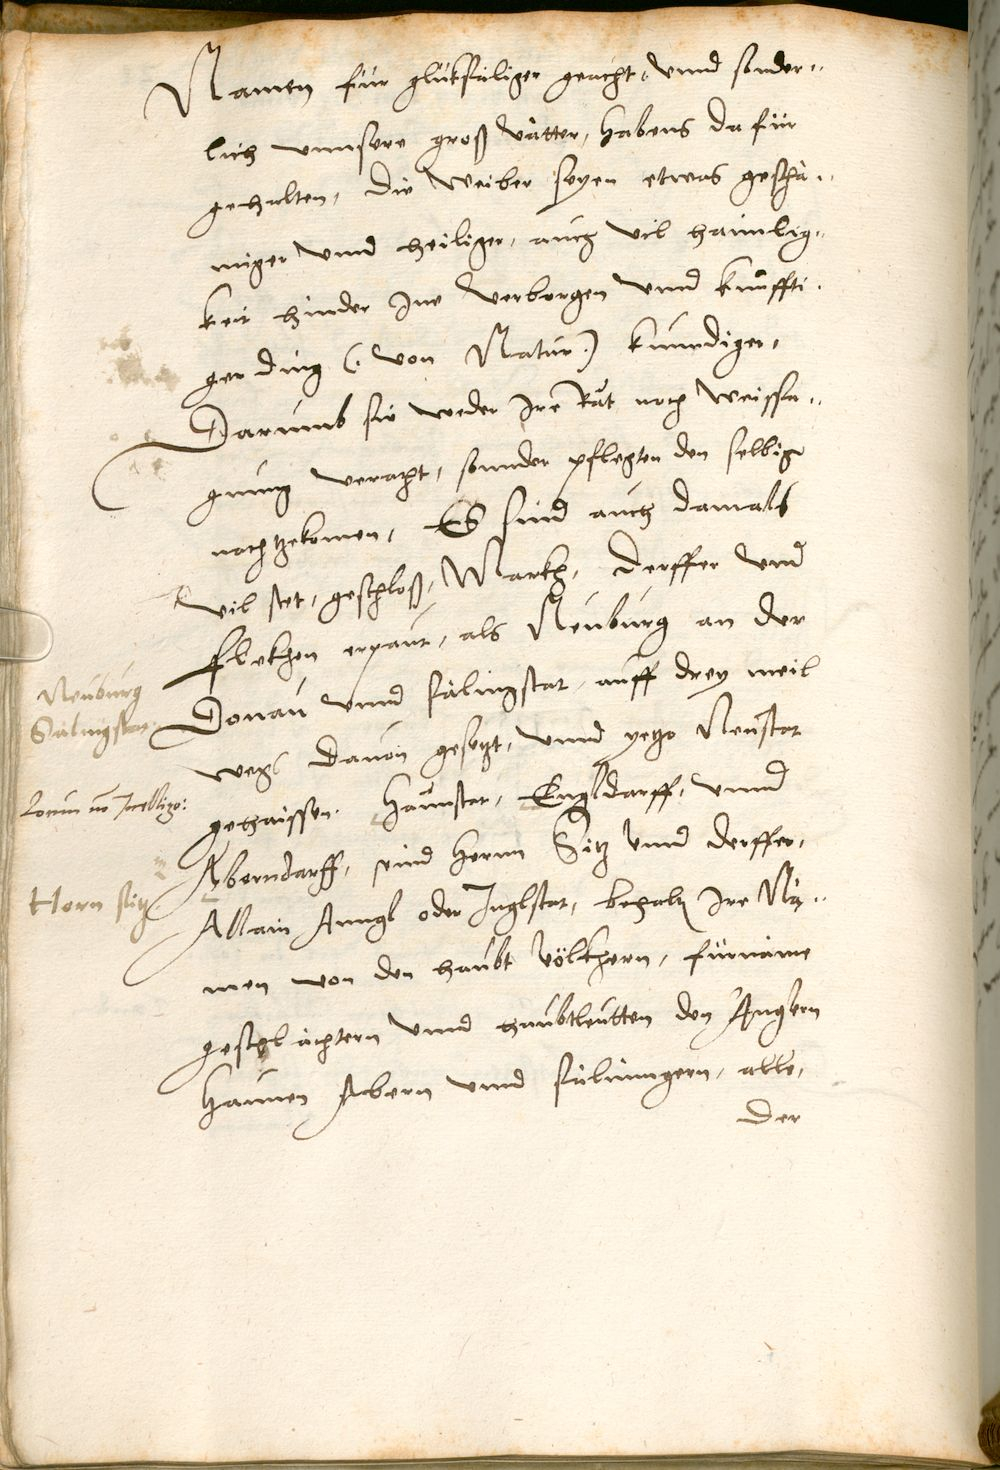 Namen für glükseliger geacht, vnnd sonder„
lich vnnsere groß vätter, habens da für
gehalten, die weiber seyen etwas geschä„
miger vnnd heiliger, auch vil haimlig„
keit hinder Ine verborgen vnnd künffti„
ger ding (: von Natur :) kunndiger,
Darumb sie weder Ire Rät noch weissa„
gunng veracht, sonnder pflegten den selbigen
nachzekomen, Es sind auch damals
vil stet, geschloß, Märkh, derffer vnd
flekhen erpaut, als Neuburg an der
Donau vnnd sälingstat, auff drey meil
wegs dauon gesetzt, vnnd yetzo Neustat
gehaissen. Haunstat, Engldarff, vnnd
Aberndarff, seind Herrn Sitz vnnd derffer,
Allain Anngl oder Inglstat, behalt Ire Nä„
men von den haubt völkhern, fürnäme
geschlächtern vnnd haubtleutten den Anglern
Haunen Abern vnnd sälinngern, alle,
der
Neuburg
Sälingstat
Locum non Intelligo:
Hern sitz